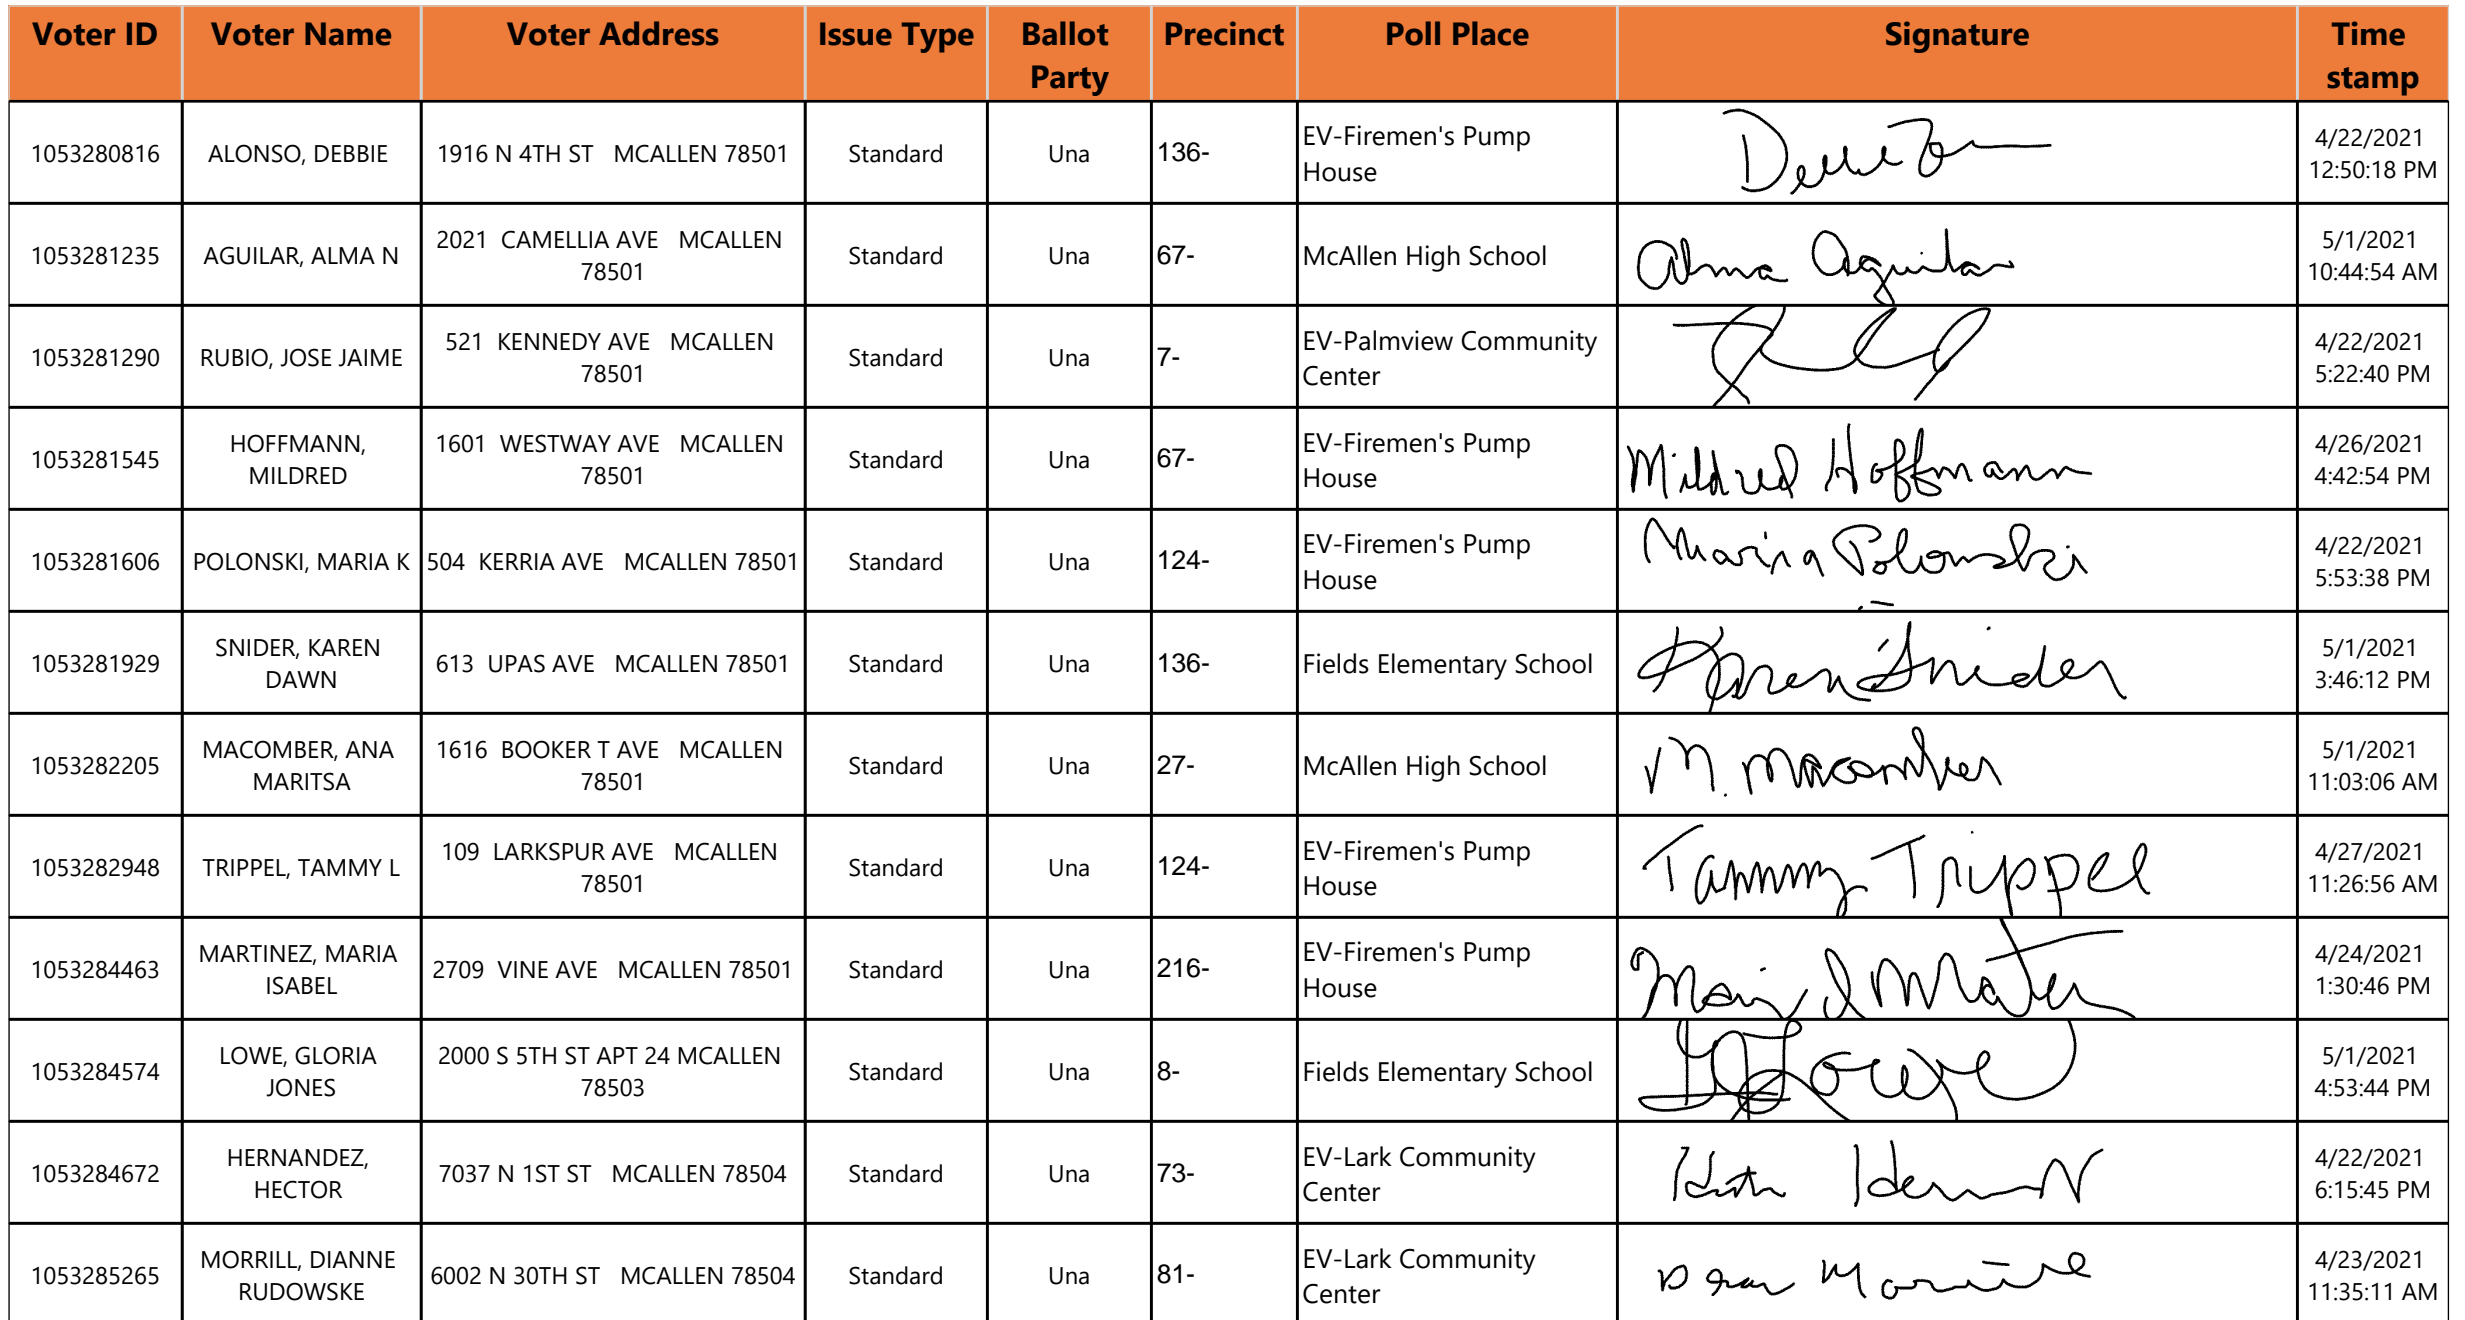 Voter ID Voter Name Voter Address Issue Type Ballot Party Precinct Poll Place Signature Time stamp
1053280816 ALONSO, DEBBIE 1916 N 4TH ST MCALLEN 78501 Standard Una 136- EV-Firemen's Pump House 4/22/2021 12:50:18 PM
1053281235 AGUILAR, ALMA N 2021 CAMELLIA AVE MCALLEN 78501 Standard Una 67- McAllen High School Alma Aguilar 5/1/2021 10:44:54 AM
1053281290 RUBIO, JOSE JAIME 521 KENNEDY AVE MCALLEN 78501 Standard Una 7- EV-Palmview Community Center 4/22/2021 5:22:40 PM
1053281545 HOFFMANN, MILDRED 1601 WESTWAY AVE MCALLEN 78501 Standard Una 67- EV-Firemen's Pump House Mildred Hoffmann 4/26/2021 4:42:54 PM
1053281606 POLONSKI, MARIA K 504 KERRIA AVE MCALLEN 78501 Standard Una 124- EV-Firemen's Pump House Maria Polonski 4/22/2021 5:53:38 PM
1053281929 SNIDER, KAREN DAWN 613 UPAS AVE MCALLEN 78501 Standard Una 136- Fields Elementary School Karen Snider 5/1/2021 3:46:12 PM
1053282205 MACOMBER, ANA MARITSA 1616 BOOKER T AVE MCALLEN 78501 Standard Una 27- McAllen High School M. Macomber 5/1/2021 11:03:06 AM
1053282948 TRIPPEL, TAMMY L 109 LARKSPUR AVE MCALLEN 78501 Standard Una 124- EV-Firemen's Pump House Tammy Trippel 4/27/2021 11:26:56 AM
1053284463 MARTINEZ, MARIA ISABEL 2709 VINE AVE MCALLEN 78501 Standard Una 216- EV-Firemen's Pump House 4/24/2021 1:30:46 PM
1053284574 LOWE, GLORIA JONES 2000 S 5TH ST APT 24 MCALLEN 78503 Standard Una 8- Fields Elementary School 5/1/2021 4:53:44 PM
1053284672 HERNANDEZ, HECTOR 7037 N 1ST ST MCALLEN 78504 Standard Una 73- EV-Lark Community Center 4/22/2021 6:15:45 PM
1053285265 MORRILL, DIANNE RUDOWSKE 6002 N 30TH ST MCALLEN 78504 Standard Una 81- EV-Lark Community Center 4/23/2021 11:35:11 AM